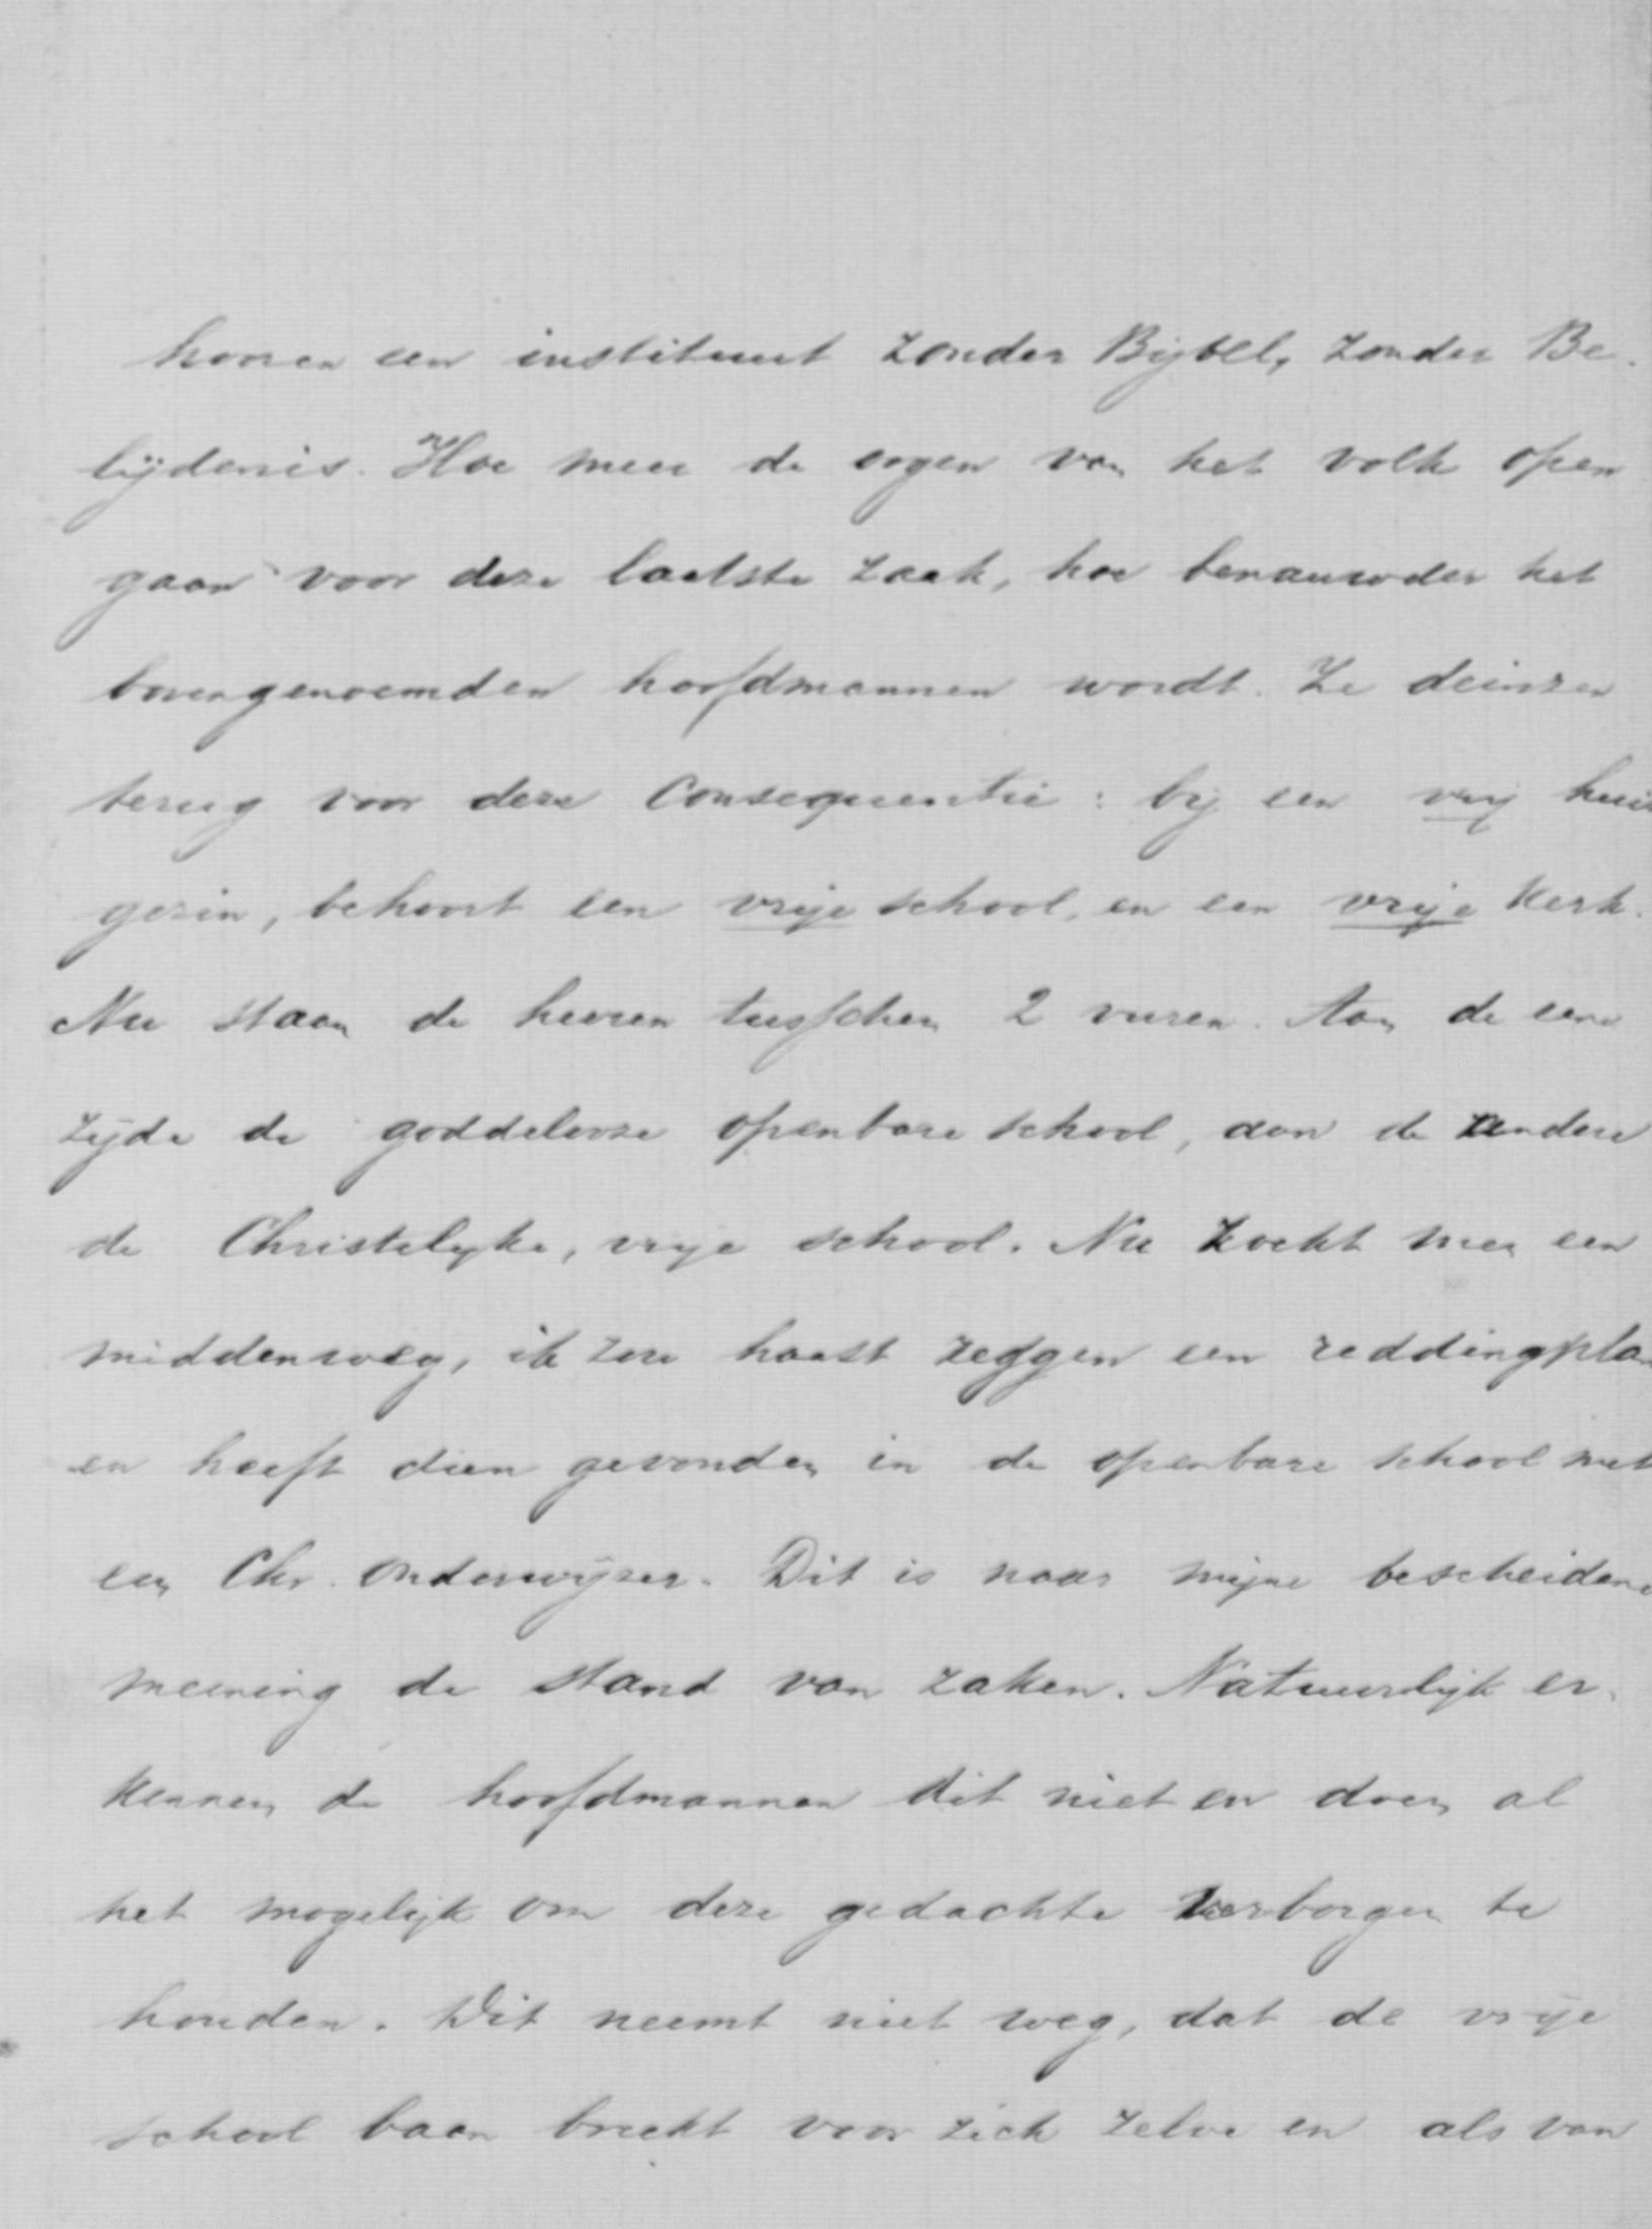 hooren een instituut zonder Bijbel, zonder Be-
lijdenis. Hoe meer de oogen van het volk open
gaan voor deze laatste zaak, hoe benauwder het
bovengenoemden hoofdmannen wordt. Ze deinzen
terug voor deze Consequentie: bij een vrij huis
gezin, behoort een vrije school, en een vrije Kerk.
Nu staan de heeren tusschen 2 vuren. Aan de eene
zijde de goddelooze openbare school, aan de andere
de Christelijke, vrije school. Nu zoekt men een
middenweg, ik zou haast zeggen een reddingplan
en heeft dien gevonden in de openbare school met
een Chr. onderwijzer. Dit is naar mijne bescheidene
meening de stand van zaken. Natuurlijk er-
kennen de hoofdmannen dit niet en doen al
het mogelijk om deze gedachte verborgen te
houden. Dit neemt niet weg, dat de vrije
school baan breekt voor zich zelve en als van